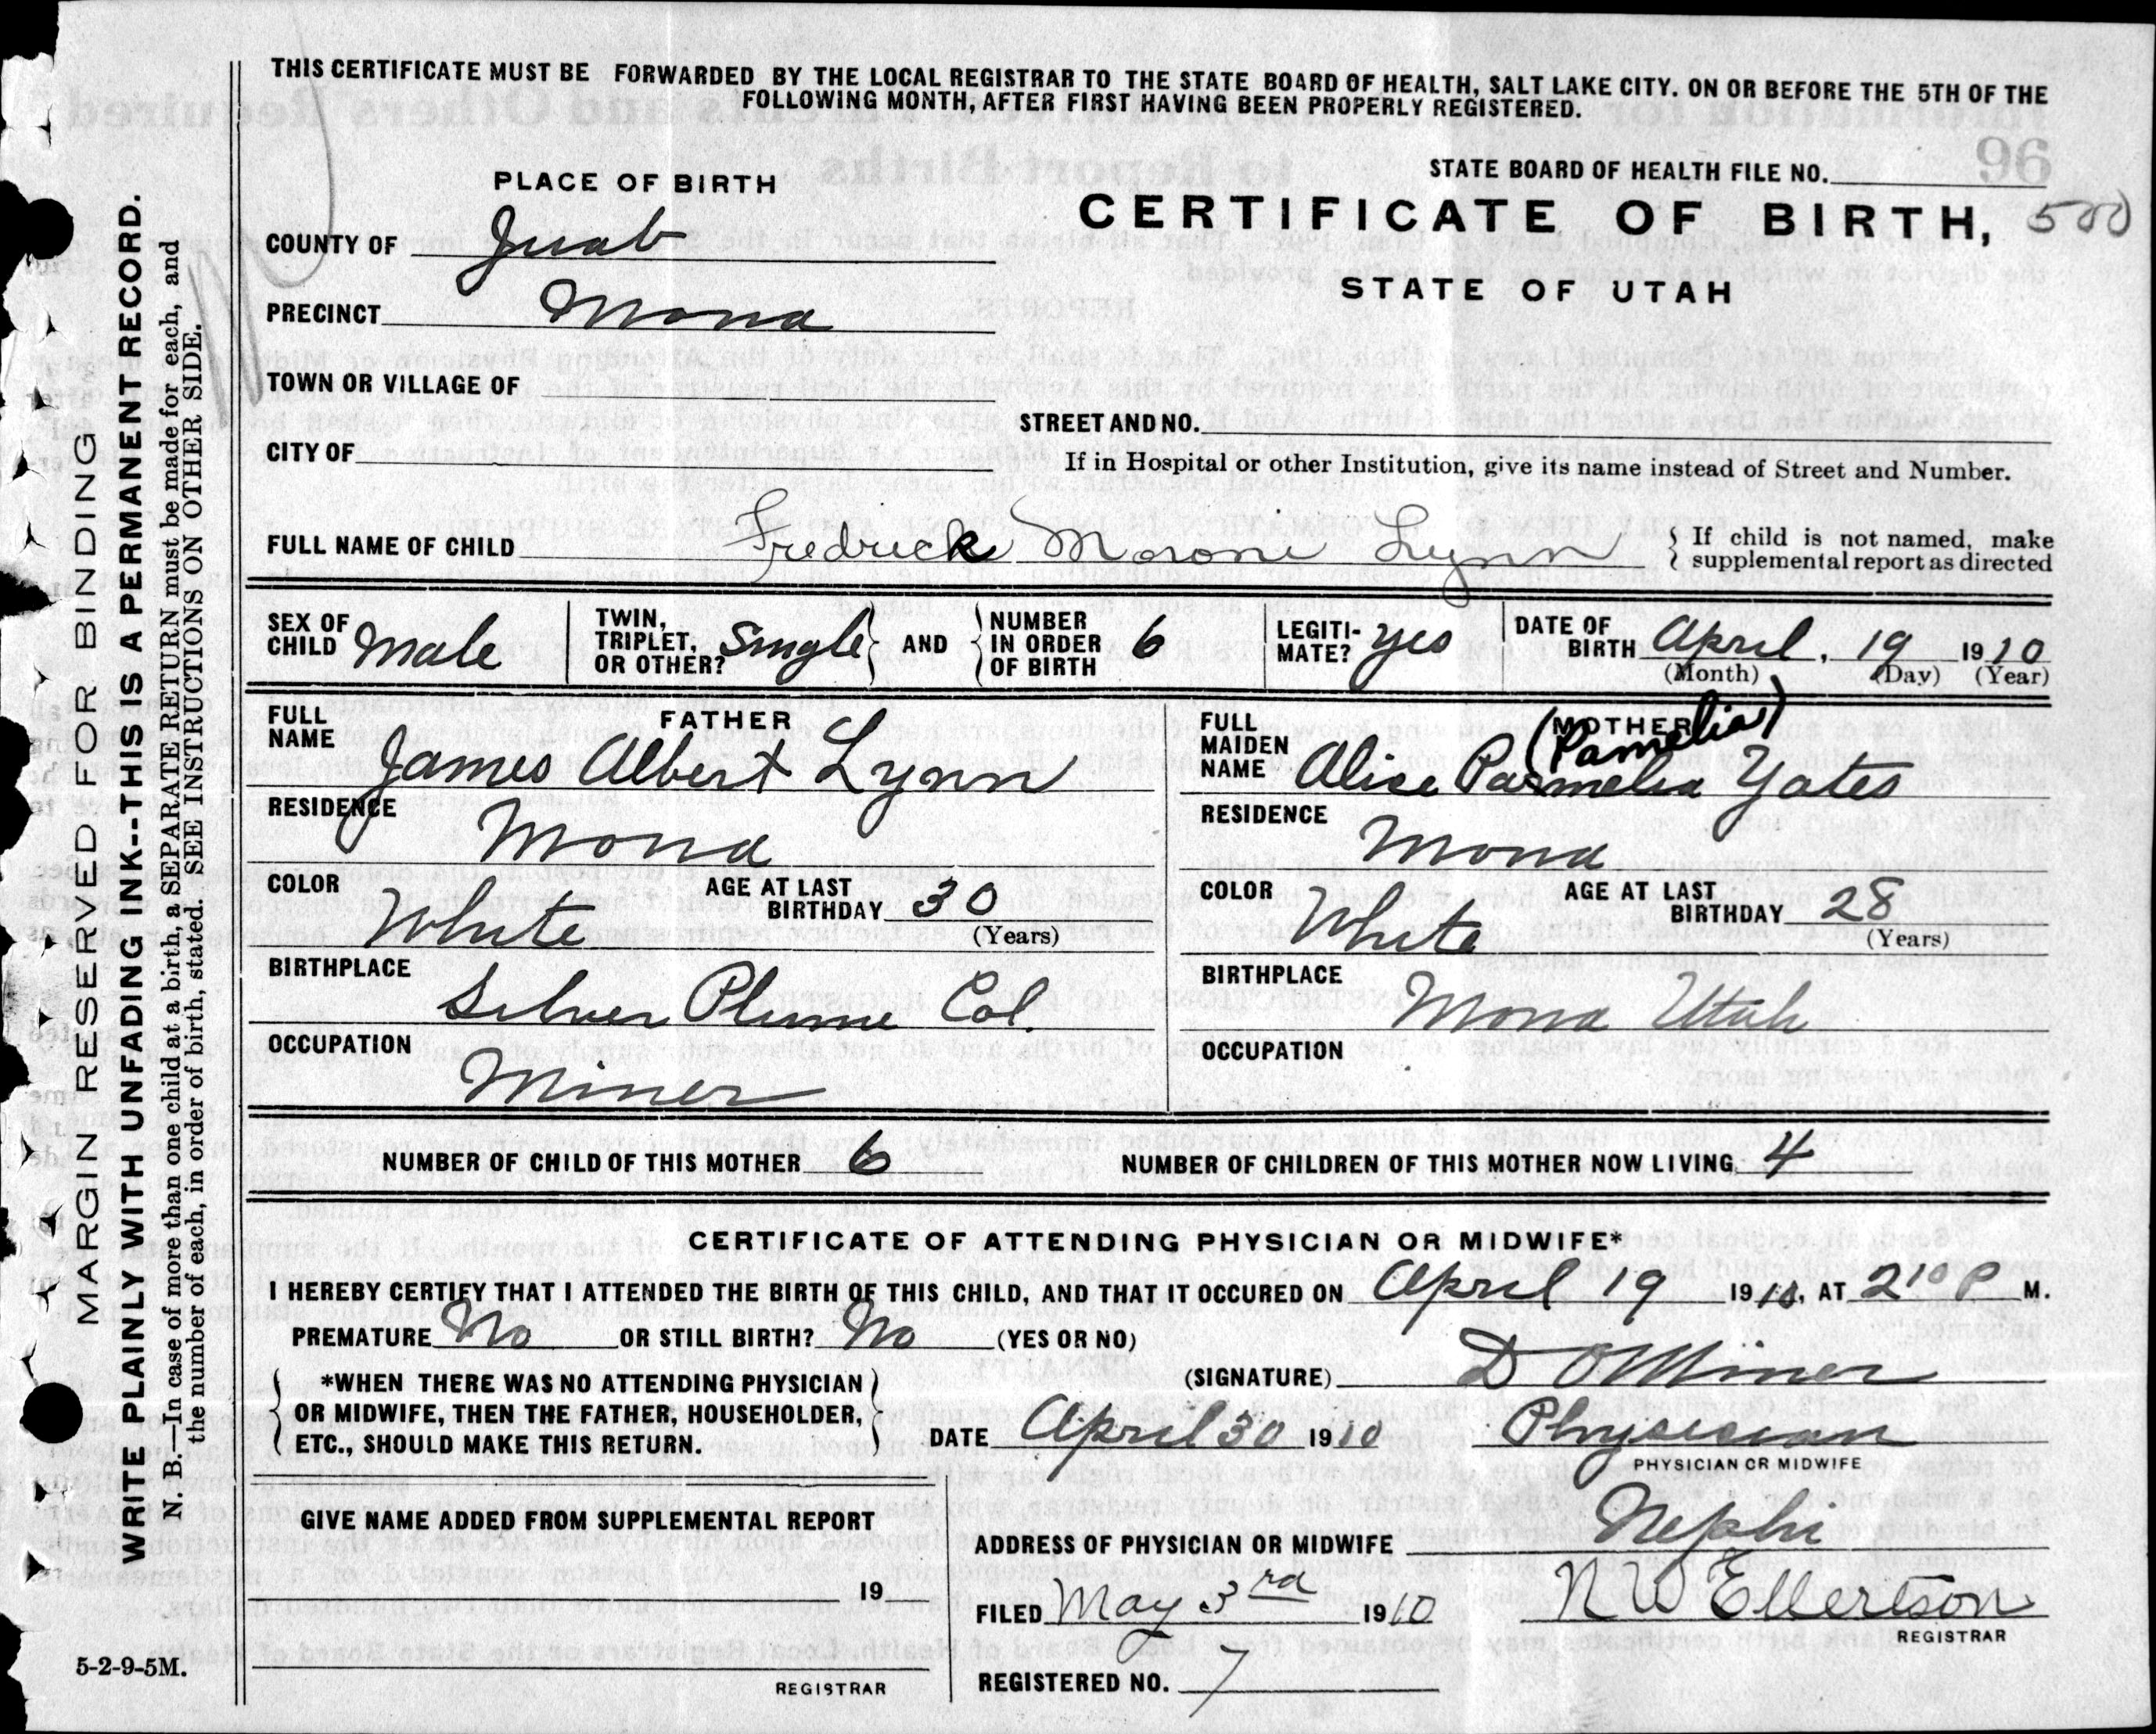 THIS CERTIFICATE MUST BE FORWARDED BY THE LOCAL REGISTRAR TO THE STATE BOARD OF HEALTH, SALT LAKE CITY. ON OR BEFORE THE 5TH OF THE
FOLLOWING MONTH, AFTER FIRST HAVING BEEN PROPERLY REGISTERED.
96
PLACE OF BIRTH
STATE BOARD OF HEALTH FILE NO.
CERTIFICATE OF BIRTH, 500
STATE OF UTAH
COUNTY OF Juab
PRECINCT Mona
TOWN OR VILLAGE OF
STREET AND NO.
CITY OF
If in Hospital or other Institution, give its name instead of Street and Number.
FULL NAME OF CHILD Fredrick Moroni Lynn
{ If child is not named, make
supplemental report as directed
SEX OF CHILD Male
TWIN, TRIPLET, OR OTHER? Single } AND { NUMBER IN ORDER OF BIRTH 6
LEGITI-MATE? yes
DATE OF BIRTH April, 19 1910
(Month) (Day) (Year)
FATHER
FULL NAME James Albert Lynn
RESIDENCE Mona
COLOR White
AGE AT LAST BIRTHDAY 30
(Years)
BIRTHPLACE Silver Plume Col.
OCCUPATION Miner
MOTHER
(Pamelia)
FULL MAIDEN NAME Alice Parmelia Yates
RESIDENCE Mona
COLOR White
AGE AT LAST BIRTHDAY 28
(Years)
BIRTHPLACE Mona Utah
OCCUPATION
NUMBER OF CHILD OF THIS MOTHER 6
NUMBER OF CHILDREN OF THIS MOTHER NOW LIVING, 4
CERTIFICATE OF ATTENDING PHYSICIAN OR MIDWIFE*
I HEREBY CERTIFY THAT I ATTENDED THE BIRTH OF THIS CHILD, AND THAT IT OCCURED ON April 19 1910, AT 2 10 P M.
PREMATURE No OR STILL BIRTH? No (YES OR NO)
{ *WHEN THERE WAS NO ATTENDING PHYSICIAN
OR MIDWIFE, THEN THE FATHER, HOUSEHOLDER,
ETC., SHOULD MAKE THIS RETURN. }
(SIGNATURE) D O Miner
DATE April 30 1910 Physician
PHYSICIAN OR MIDWIFE
GIVE NAME ADDED FROM SUPPLEMENTAL REPORT
19
REGISTRAR
ADDRESS OF PHYSICIAN OR MIDWIFE Nephi
FILED May 3rd 1910 N W Ellertson
REGISTRAR
REGISTERED NO. 7
5-2-9-5M.
MARGIN RESERVED FOR BINDING
WRITE PLAINLY WITH UNFADING INK--THIS IS A PERMANENT RECORD.
N. B.—In case of more than one child at a birth, a SEPARATE RETURN must be made for each, and
the number of each, in order of birth, stated. SEE INSTRUCTIONS ON OTHER SIDE.